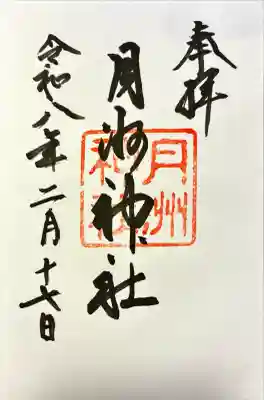 奉拝
月洲神社
令和八年二月十七日
月州神社